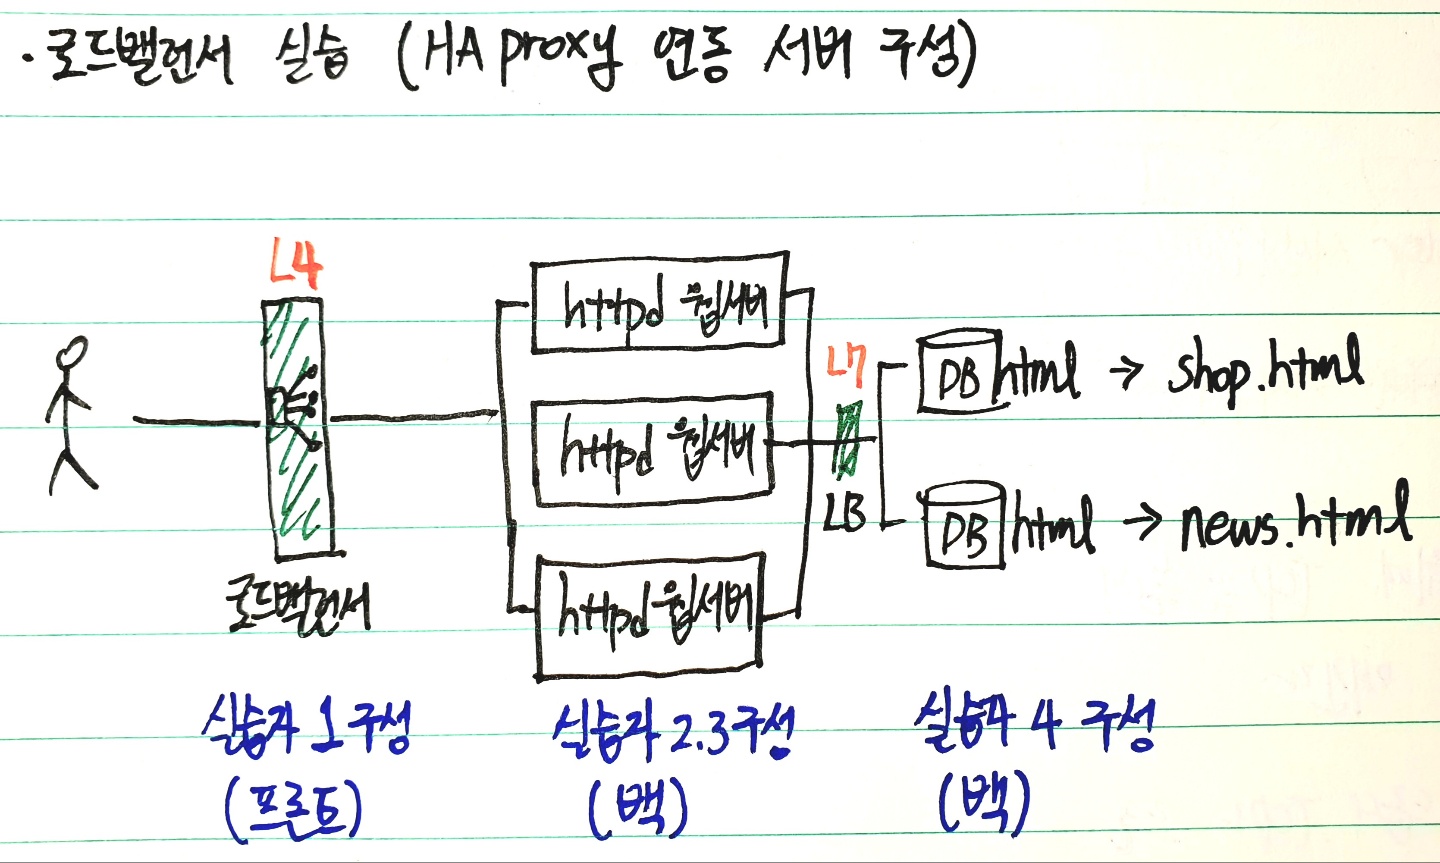 · 로드밸런서 실습 (HA proxy 연동 서버 구성)
L4
로드밸런서
httpd 웹서버
httpd 웹서버
httpd 웹서버
L7
LB
DB html → shop.html
DB html → news.html
실습자 1 구성
(프론트)
실습자 2.3 구성
(백)
실습자 4 구성
(백)